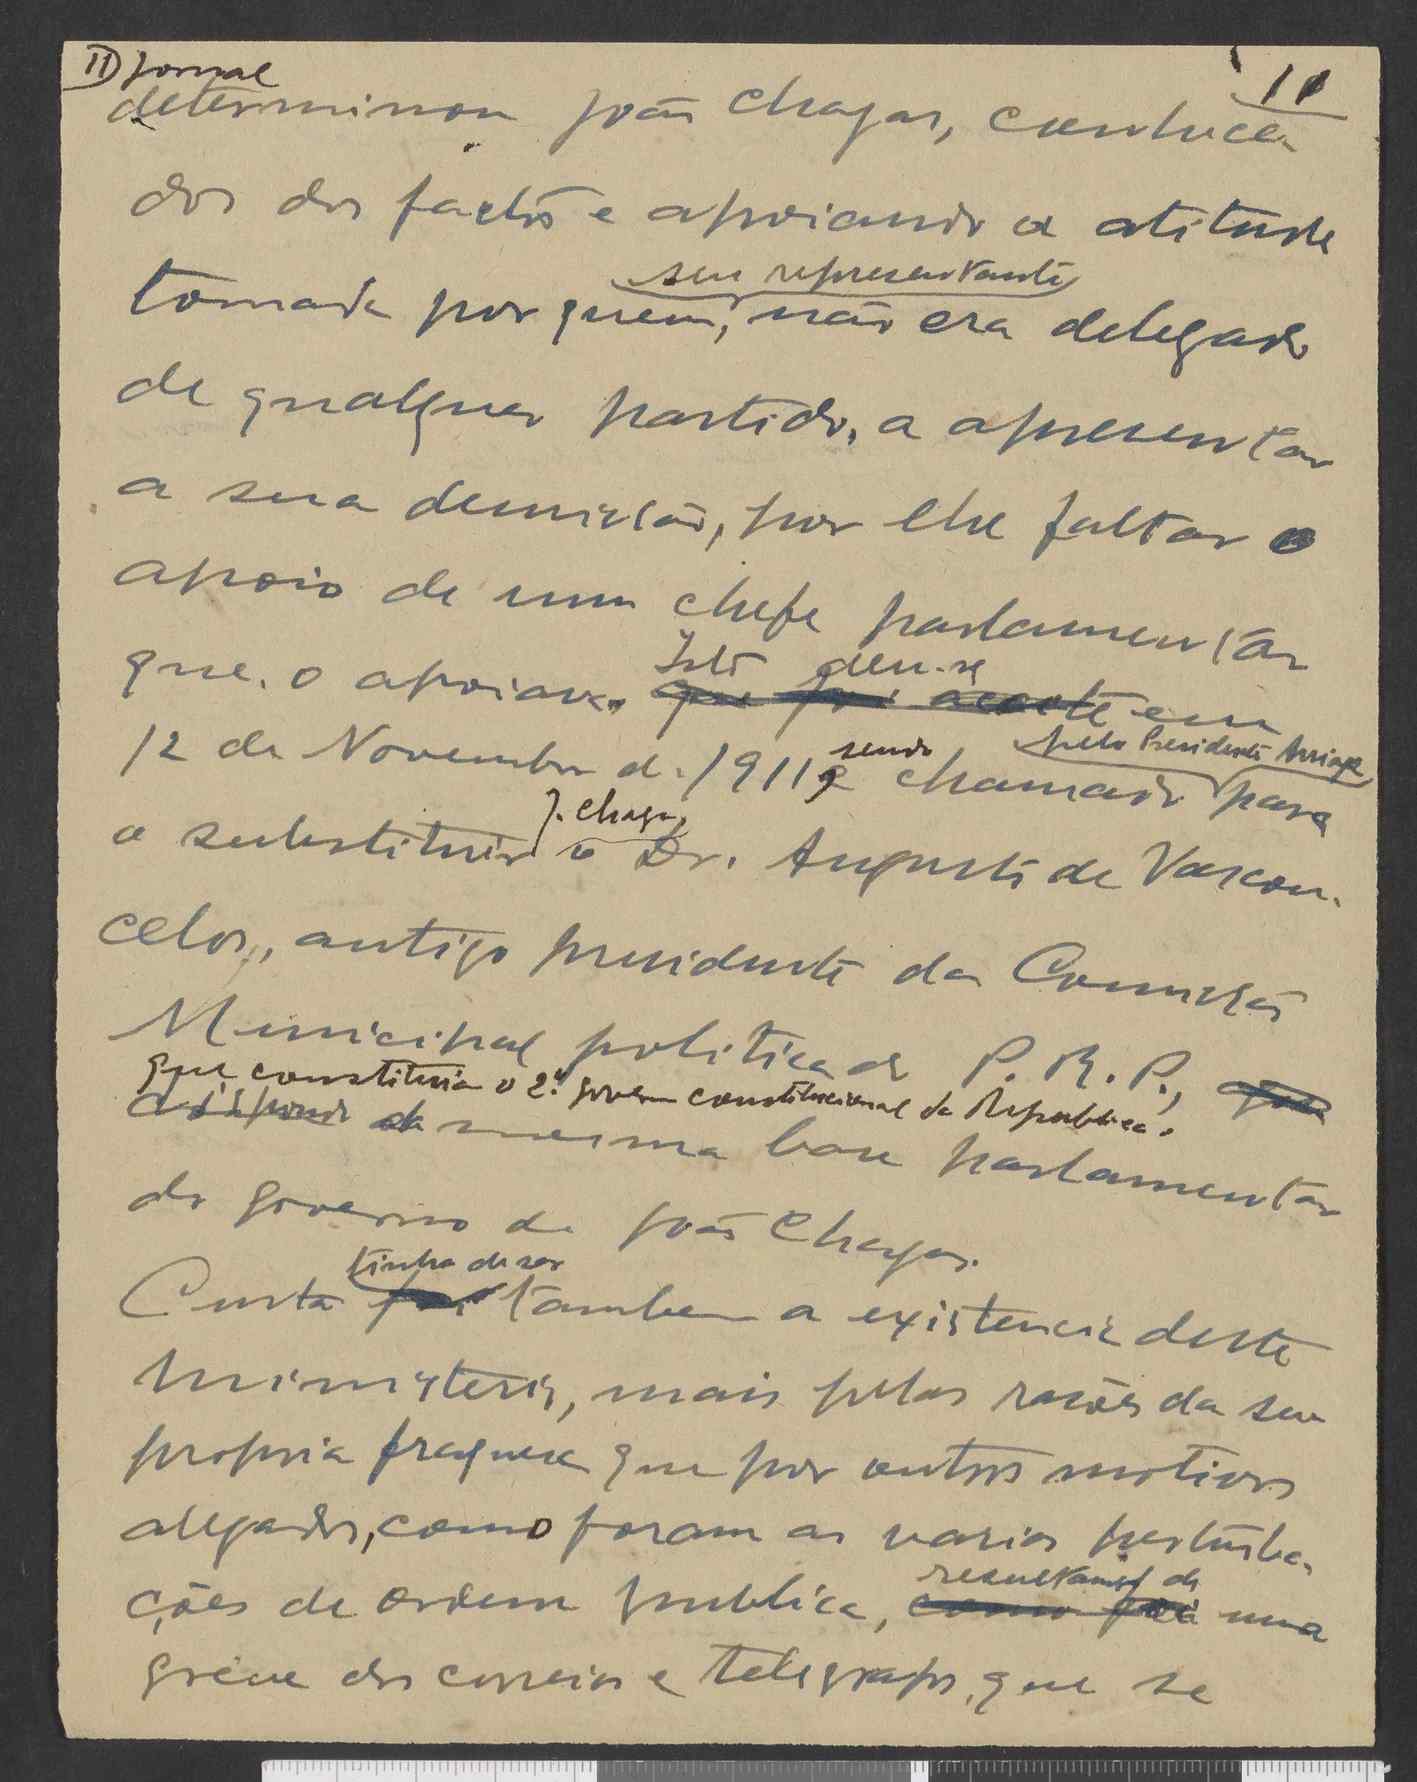 II) Jornal
11
determinou João Chagas, conhece-
dor dos factos e apoiando a atitude
seu representante
tomada por quem, não era delegado
de qualquer partido, a apresentar
a sua demissão, por lhe faltar o
apoio de um chefe parlamentar
Isto deu-se
que o apoiava. que foi aceite em
sendo pelo Presidente Arriaga
12 de Novembro de 1911, e chamado para
J. Chagas,
a substituir o Dr. Augusto de Vascon-
celos, antigo presidente da Comissão
Municipal politica do P. R. P., que
que constituia o 2.º governo constitucional da Republica.
dispondo da mesma base parlamentar
do governo de João Chagas.
tinha de ser
Curta foi tambem a existencia deste
ministerio, mais pelas rasões da sua
propria fraquesa que por outros motivos
alegados, como foram as varias perturba-
resultantes de
ções de ordem publica, como foi uma
gréve dos correios e telegrafos, que se